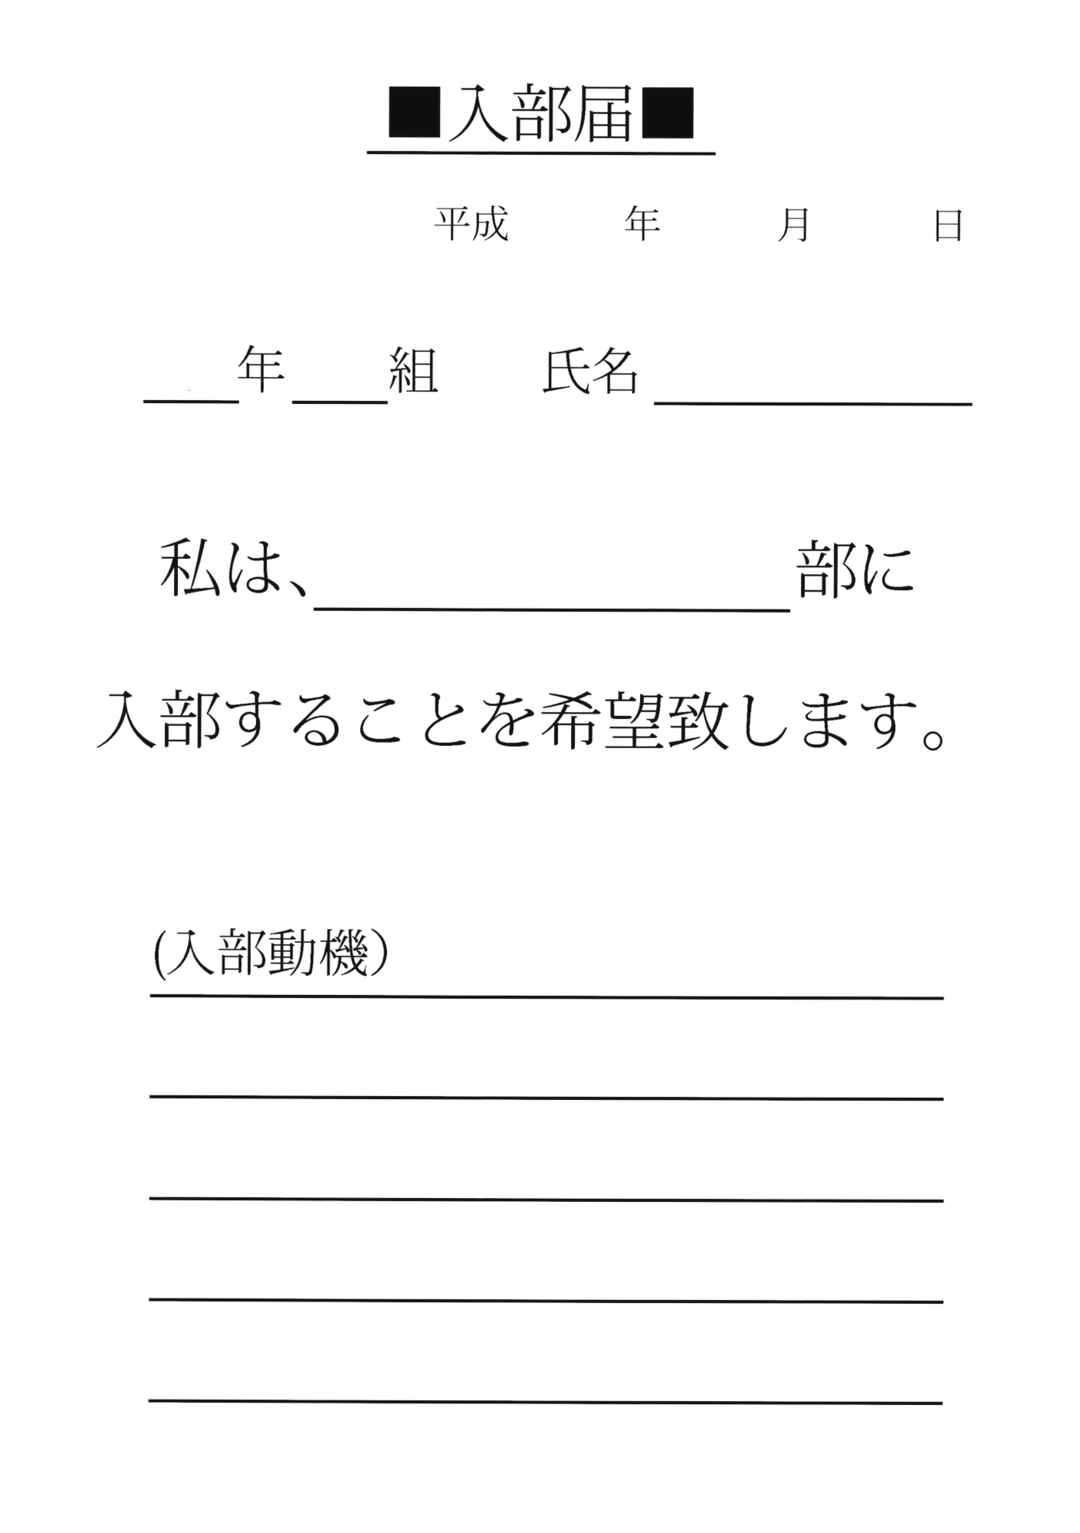 ■入部届■
平成　　　年　　　月　　　日
＿＿年＿＿組　　氏名＿＿＿＿＿＿
私は、＿＿＿＿＿＿＿＿部に
入部することを希望致します。
(入部動機）